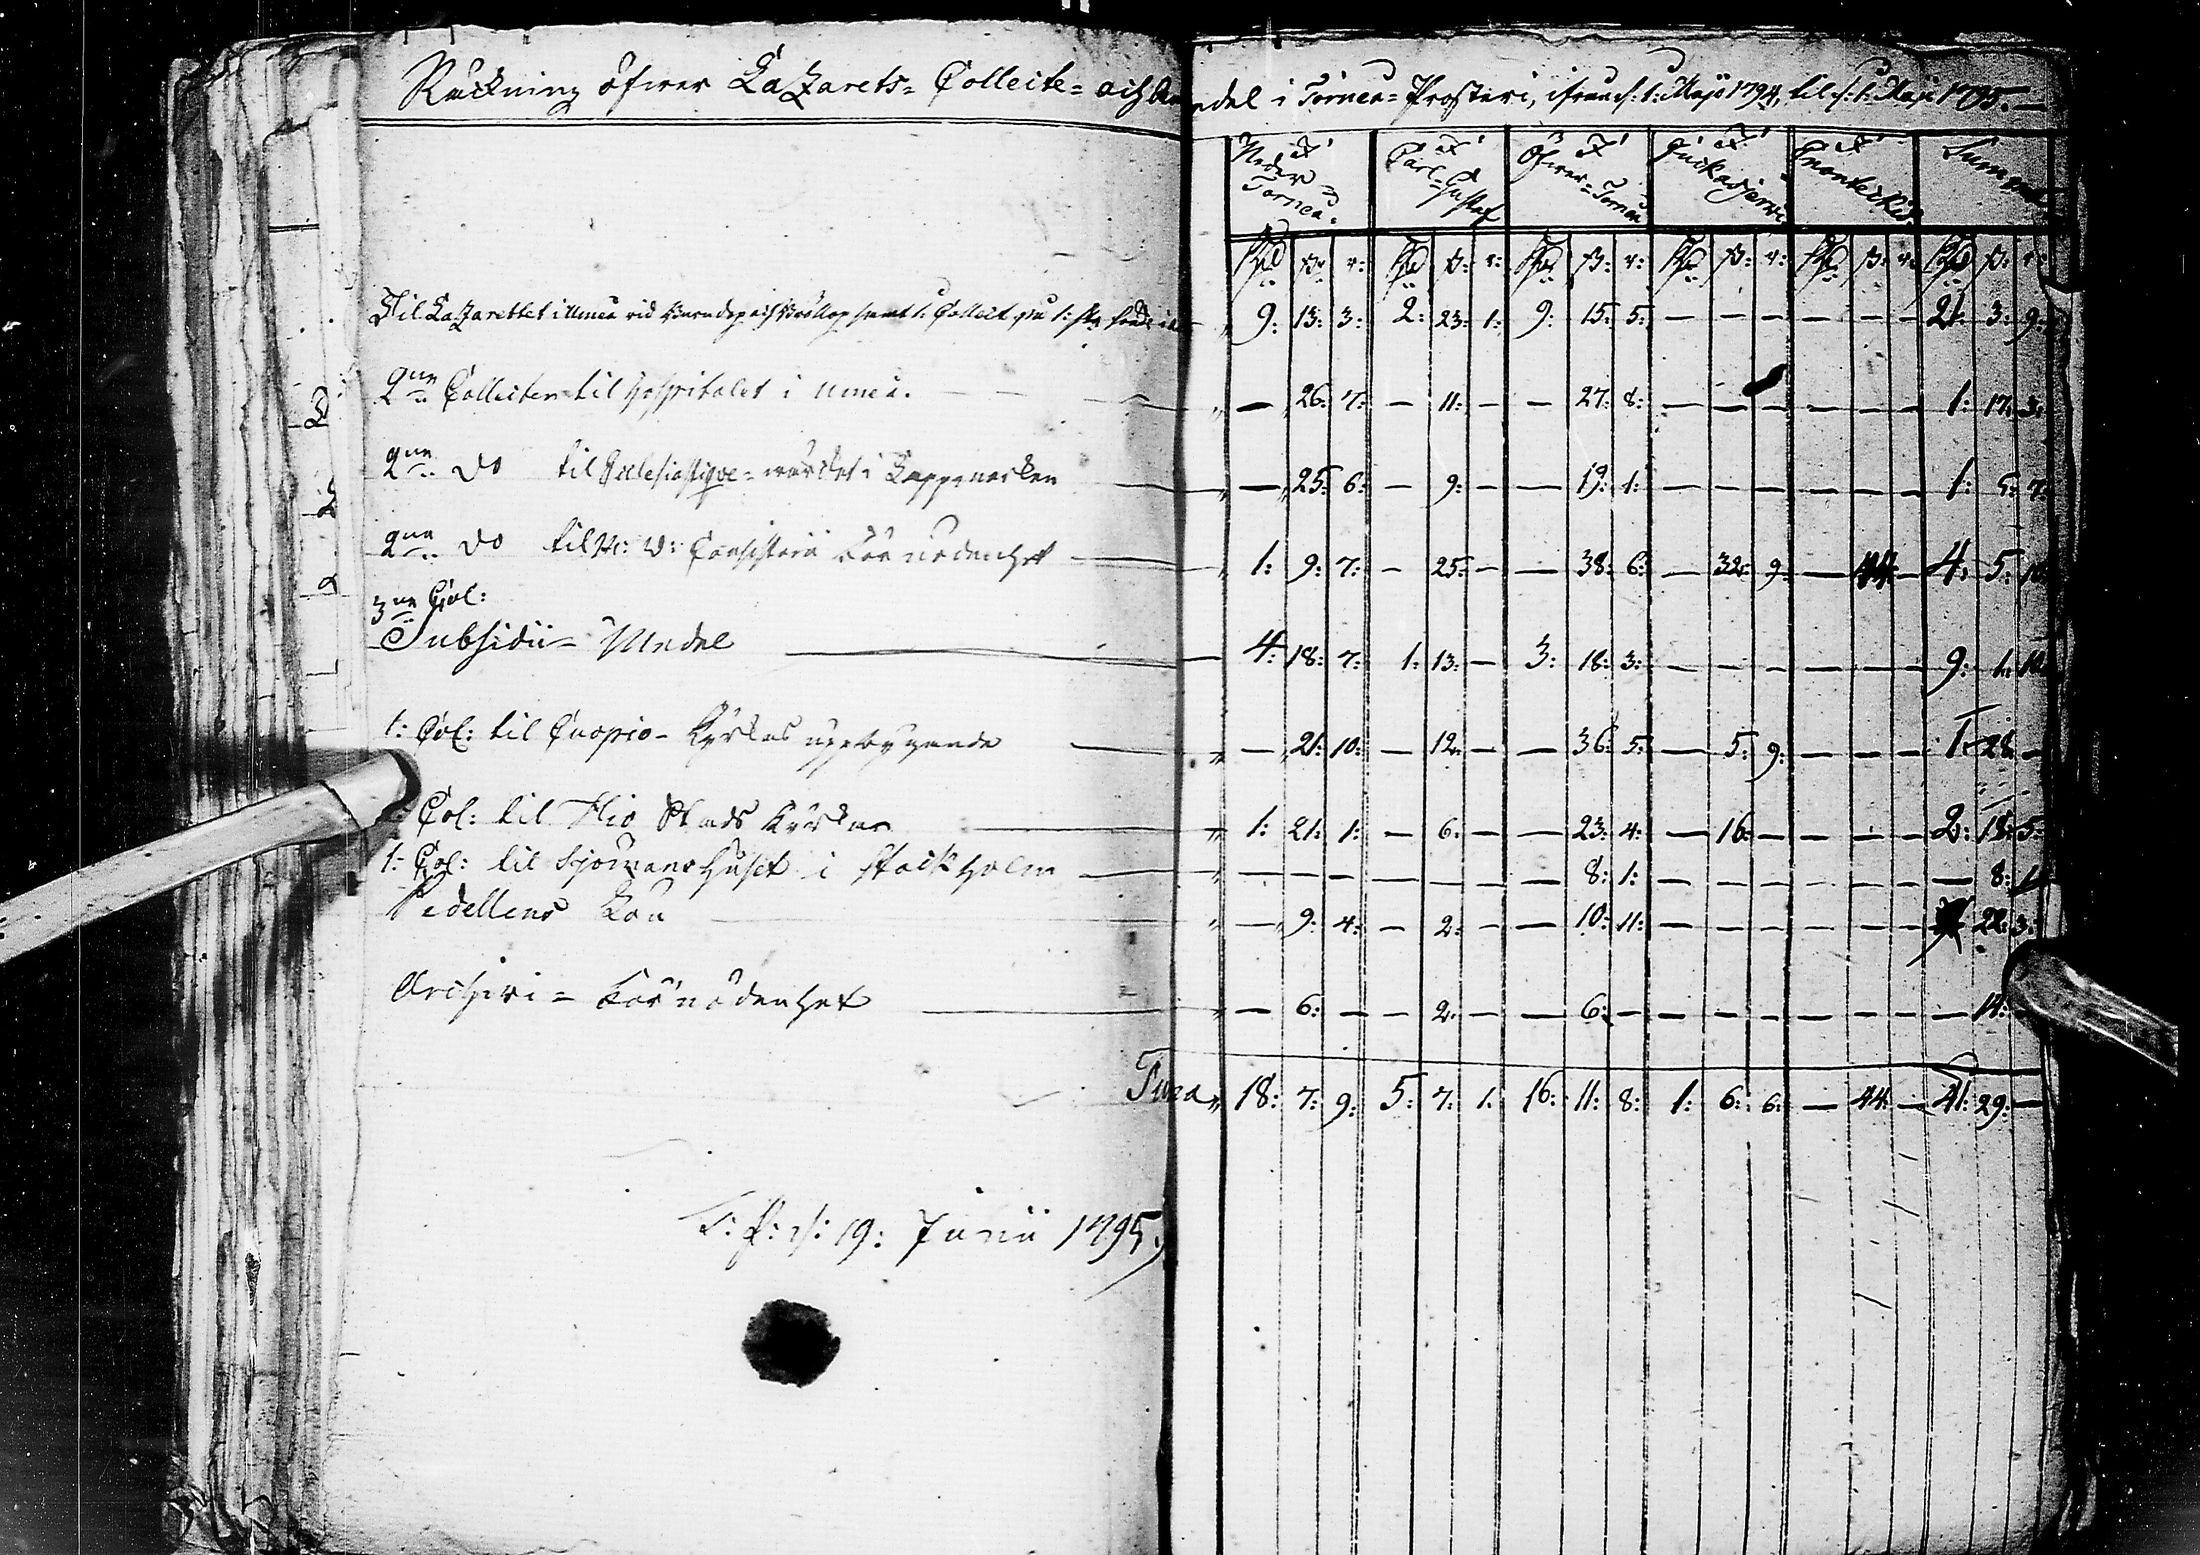 Räckning öfwer Lazarets= Collecte= och andel i Torneå= Prosteri, ifrån d: 1: Maji 1794, til d: 1: Maji 1795.
af Neder= Torneå. af Carl= Gustaf af Öfwer= Torneå af Juckasjerwi af Enontekis Summa
Rd ß: r: Rd ß: r: Rd ß: r: Rd ß: r: Rd ß: r: Rd ß: r:
Til Lazarettet i Umeå vid Barndop och Bröllop samt 1: Collect „ 9: 13: 3: 2: 23: 1: 9: 15: 5: — — — — — — 21: 3: 9:
2ne Collecter til Hospitalet i Umeå. „ — 26: 7: — 11: — — 27: 8: — — — — — — 1: 17: 3:
2ne do til Ecclesiastique= wärket i Lappmarken „ — 25: 6: — 9: — — 19: 1: — — — — — — 1: 5: 7:
2ne do til H: V: Consistorii Förnödenhet „ 1: 9: 7: — 25: — — 38: 6: — 32: 9: — 44: — 4: 5: 10:
3ne Col:
Subsidii= Medel 4: 18: 7: 1: 13: — 3: 18: 3: — — — — — — 9: 1: 10:
1: Col: til Cuopio= Kyrkas uppbyggande „ — 21: 10: — 12: — — 36: 5: — 5: 9: — — — 1: 28 —
Col: til Hio Stads Kyrka „ 1: 21: 1: — 6: — — 23: 4: — 16: — — — — 2: 18: 5:
1: Col: til Sjömanshuset i Stockholm „ — — — — — — — 8: 1: — — — — — — — 8: 1
Pedellens Lön „ — 9: 4: — 2: — — 10: 11: — — — — — — 22: 3:
Archivi= Förnödenhet „ — 6: — — 2: — — 6: — — — — — — — — 14:
Suma „ 18: 7: 9: 5: 7: 1: 16: 11: 8: 1: 6: 6: — 44: — 41: 29: —
d: 19: Junii 1795.